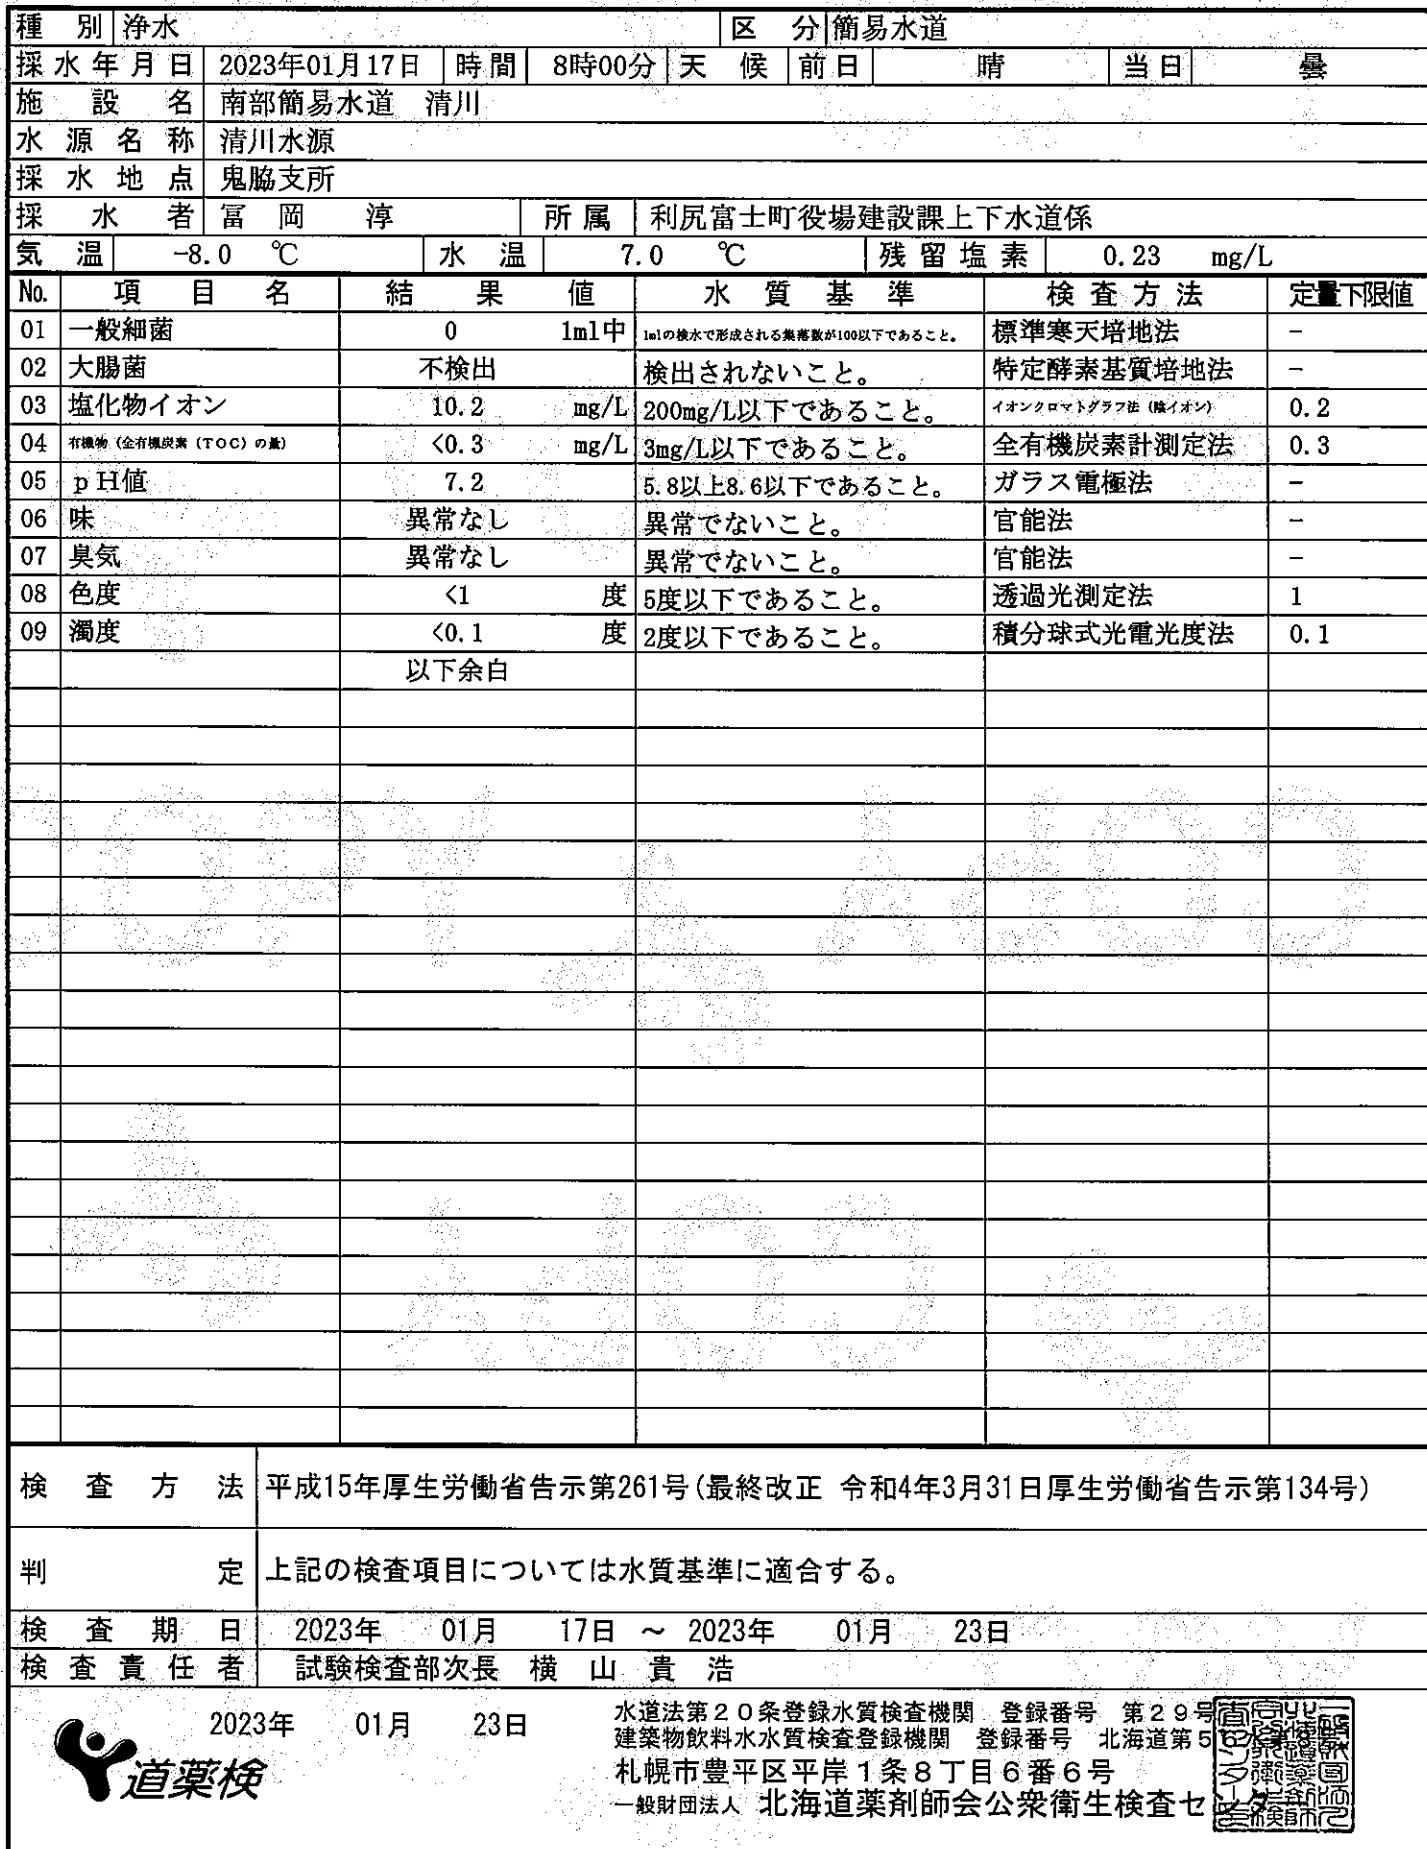 種別 浄水 区分 簡易水道
採水年月日 2023年01月17日 時間 8時00分 天候 前日 晴 当日 曇
施設名 南部簡易水道 清川
水源名称 清川水源
採水地点 鬼脇支所
採水者 冨岡 淳 所属 利尻富士町役場建設課上下水道係
気温 -8.0 ℃ 水温 7.0 ℃ 残留塩素 0.23 mg/L
No. 項目名 結果値 水質基準 検査方法 定量下限値
01 一般細菌 0 1ml中 1mlの検水で形成される集落数が100以下であること。 標準寒天培地法 -
02 大腸菌 不検出 検出されないこと。 特定酵素基質培地法 -
03 塩化物イオン 10.2 mg/L 200mg/L以下であること。 イオンクロマトグラフ法（陰イオン） 0.2
04 有機物（全有機炭素（TOC）の量） <0.3 mg/L 3mg/L以下であること。 全有機炭素計測定法 0.3
05 pH値 7.2 5.8以上8.6以下であること。 ガラス電極法 -
06 味 異常なし 異常でないこと。 官能法 -
07 臭気 異常なし 異常でないこと。 官能法 -
08 色度 <1 度 5度以下であること。 透過光測定法 1
09 濁度 <0.1 度 2度以下であること。 積分球式光電光度法 0.1
以下余白
検査方法 平成15年厚生労働省告示第261号(最終改正 令和4年3月31日厚生労働省告示第134号)
判定 上記の検査項目については水質基準に適合する。
検査期日 2023年 01月 17日 ～ 2023年 01月 23日
検査責任者 試験検査部次長 横山 貴浩
2023年 01月 23日
道薬検
水道法第20条登録水質検査機関 登録番号 第29号
建築物飲料水水質検査登録機関 登録番号 北海道第56水第
札幌市豊平区平岸1条8丁目6番6号
一般財団法人 北海道薬剤師会公衆衛生検査センター